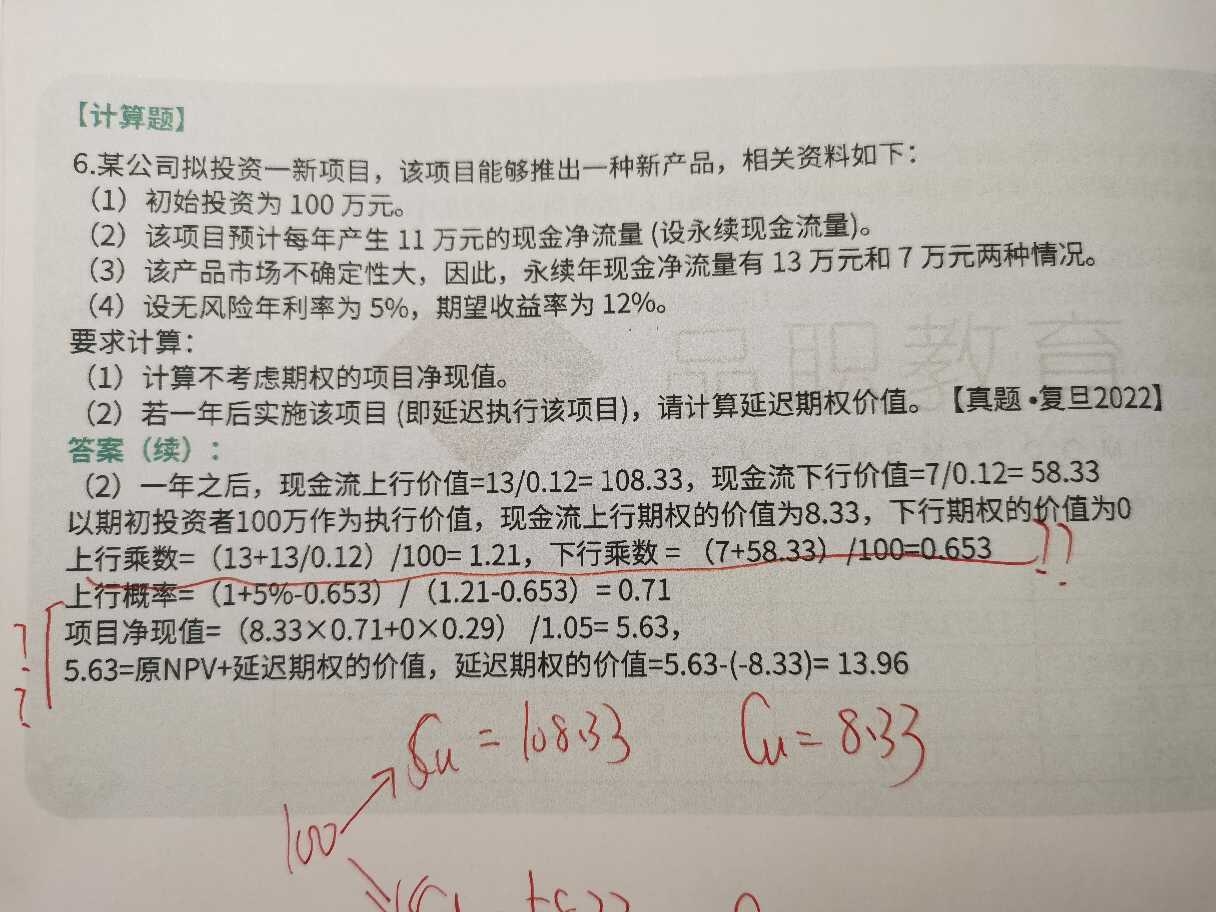 【计算题】
6.某公司拟投资一新项目，该项目能够推出一种新产品，相关资料如下：
（1）初始投资为 100 万元。
（2）该项目预计每年产生 11 万元的现金净流量 (设永续现金流量)。
（3）该产品市场不确定性大，因此，永续年现金净流量有 13 万元和 7 万元两种情况。
（4）设无风险年利率为 5%，期望收益率为 12%。
要求计算：
（1）计算不考虑期权的项目净现值。
（2）若一年后实施该项目 (即延迟执行该项目)，请计算延迟期权价值。【真题·复旦2022】
答案（续）：
（2）一年之后，现金流上行价值=13/0.12= 108.33，现金流下行价值=7/0.12= 58.33
以期初投资者100万作为执行价值，现金流上行期权的价值为8.33，下行期权的价值为0
上行乘数=（13+13/0.12）/100= 1.21，下行乘数 = （7+58.33）/100=0.653 ??
上行概率=（1+5%-0.653）/（1.21-0.653）= 0.71
??
项目净现值=（8.33×0.71+0×0.29） /1.05= 5.63，
5.63=原NPV+延迟期权的价值，延迟期权的价值=5.63-(-8.33)= 13.96
品职教育
Su = 108.33 Cu = 8.33
100